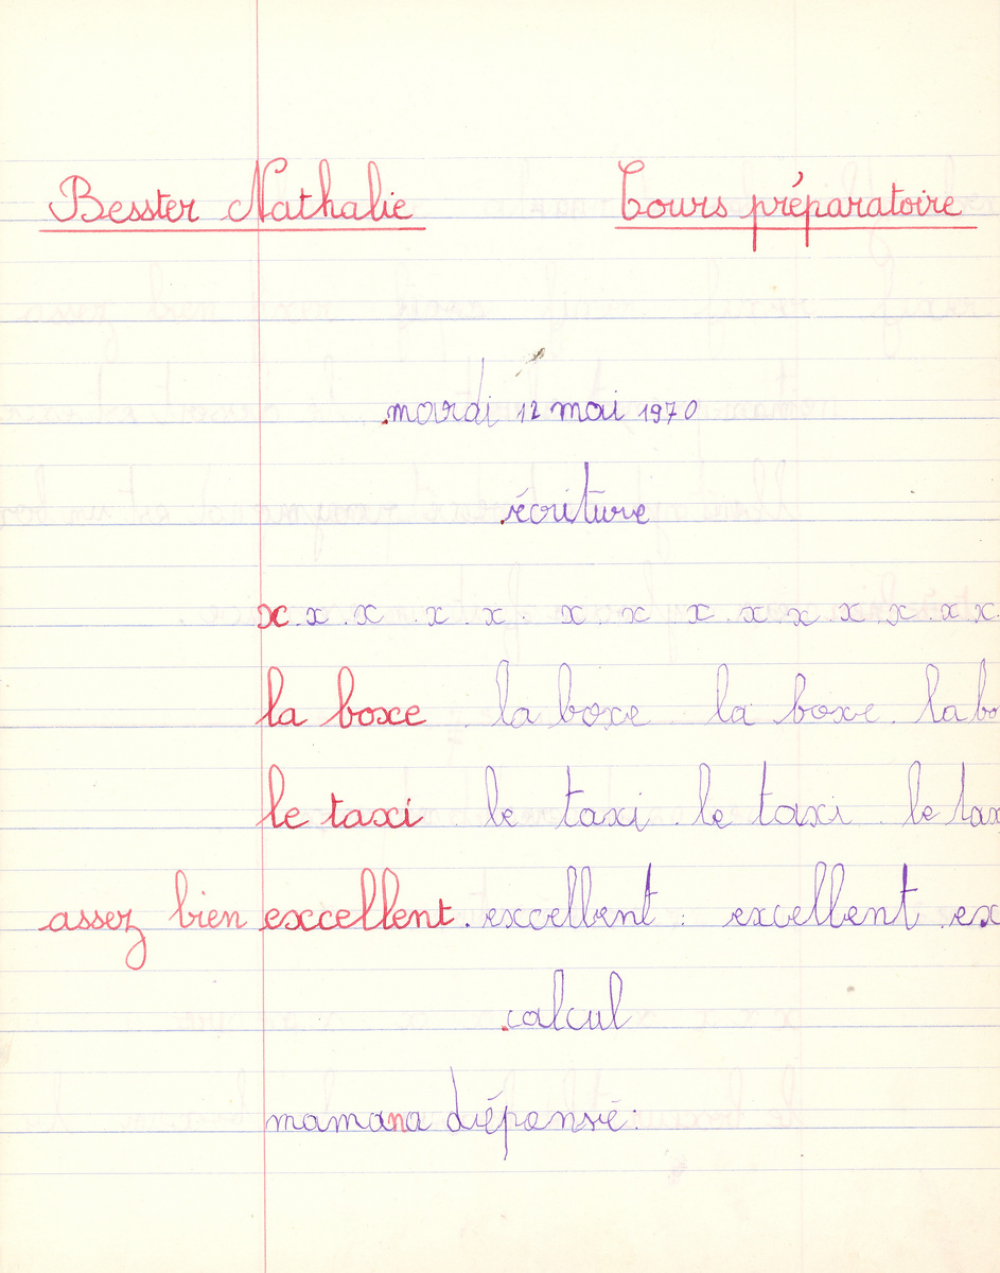 Besster Nathalie Cours préparatoire
mardi 12 mai 1970
écriture
x . x . x . x . x . x . x . x . x x . x . x . x . x .
la boxe . la boxe . la boxe . la bo
le taxi le taxi . le taxi . le tax
assez bien excellent . excellent . excellent ex
calcul
maman a dépensé :